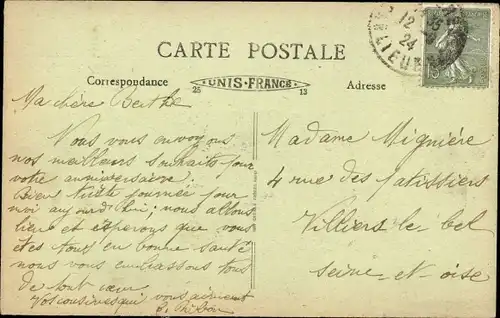 12
24
CARTE POSTALE
Correspondance
UNIS-FRANCE
25
13
Adresse
Ma chère Berthe
Nous vous envoyons
nos meilleurs souhaits pour
votre anniversaire.
Bien triste journée pour
moi aujourd'hui; nous allons
et espérons que vous
etes tous en bonne santé
nous vous embrassons tous
de tout cœur
Vos cousines qui vous aiment
Madame Mignière
4 rue des patissiers
Villiers le bel
seine-et-oise